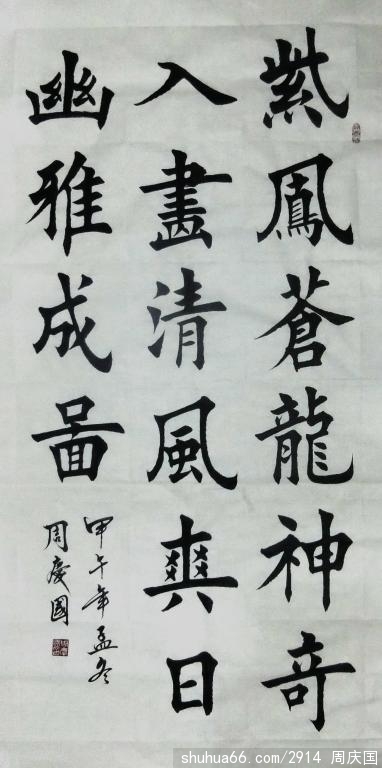 紫鳳蒼龍神奇
入畫清風爽日
幽雅成啚
甲午年孟冬
周慶國
shuhua66.com/2914 周庆国